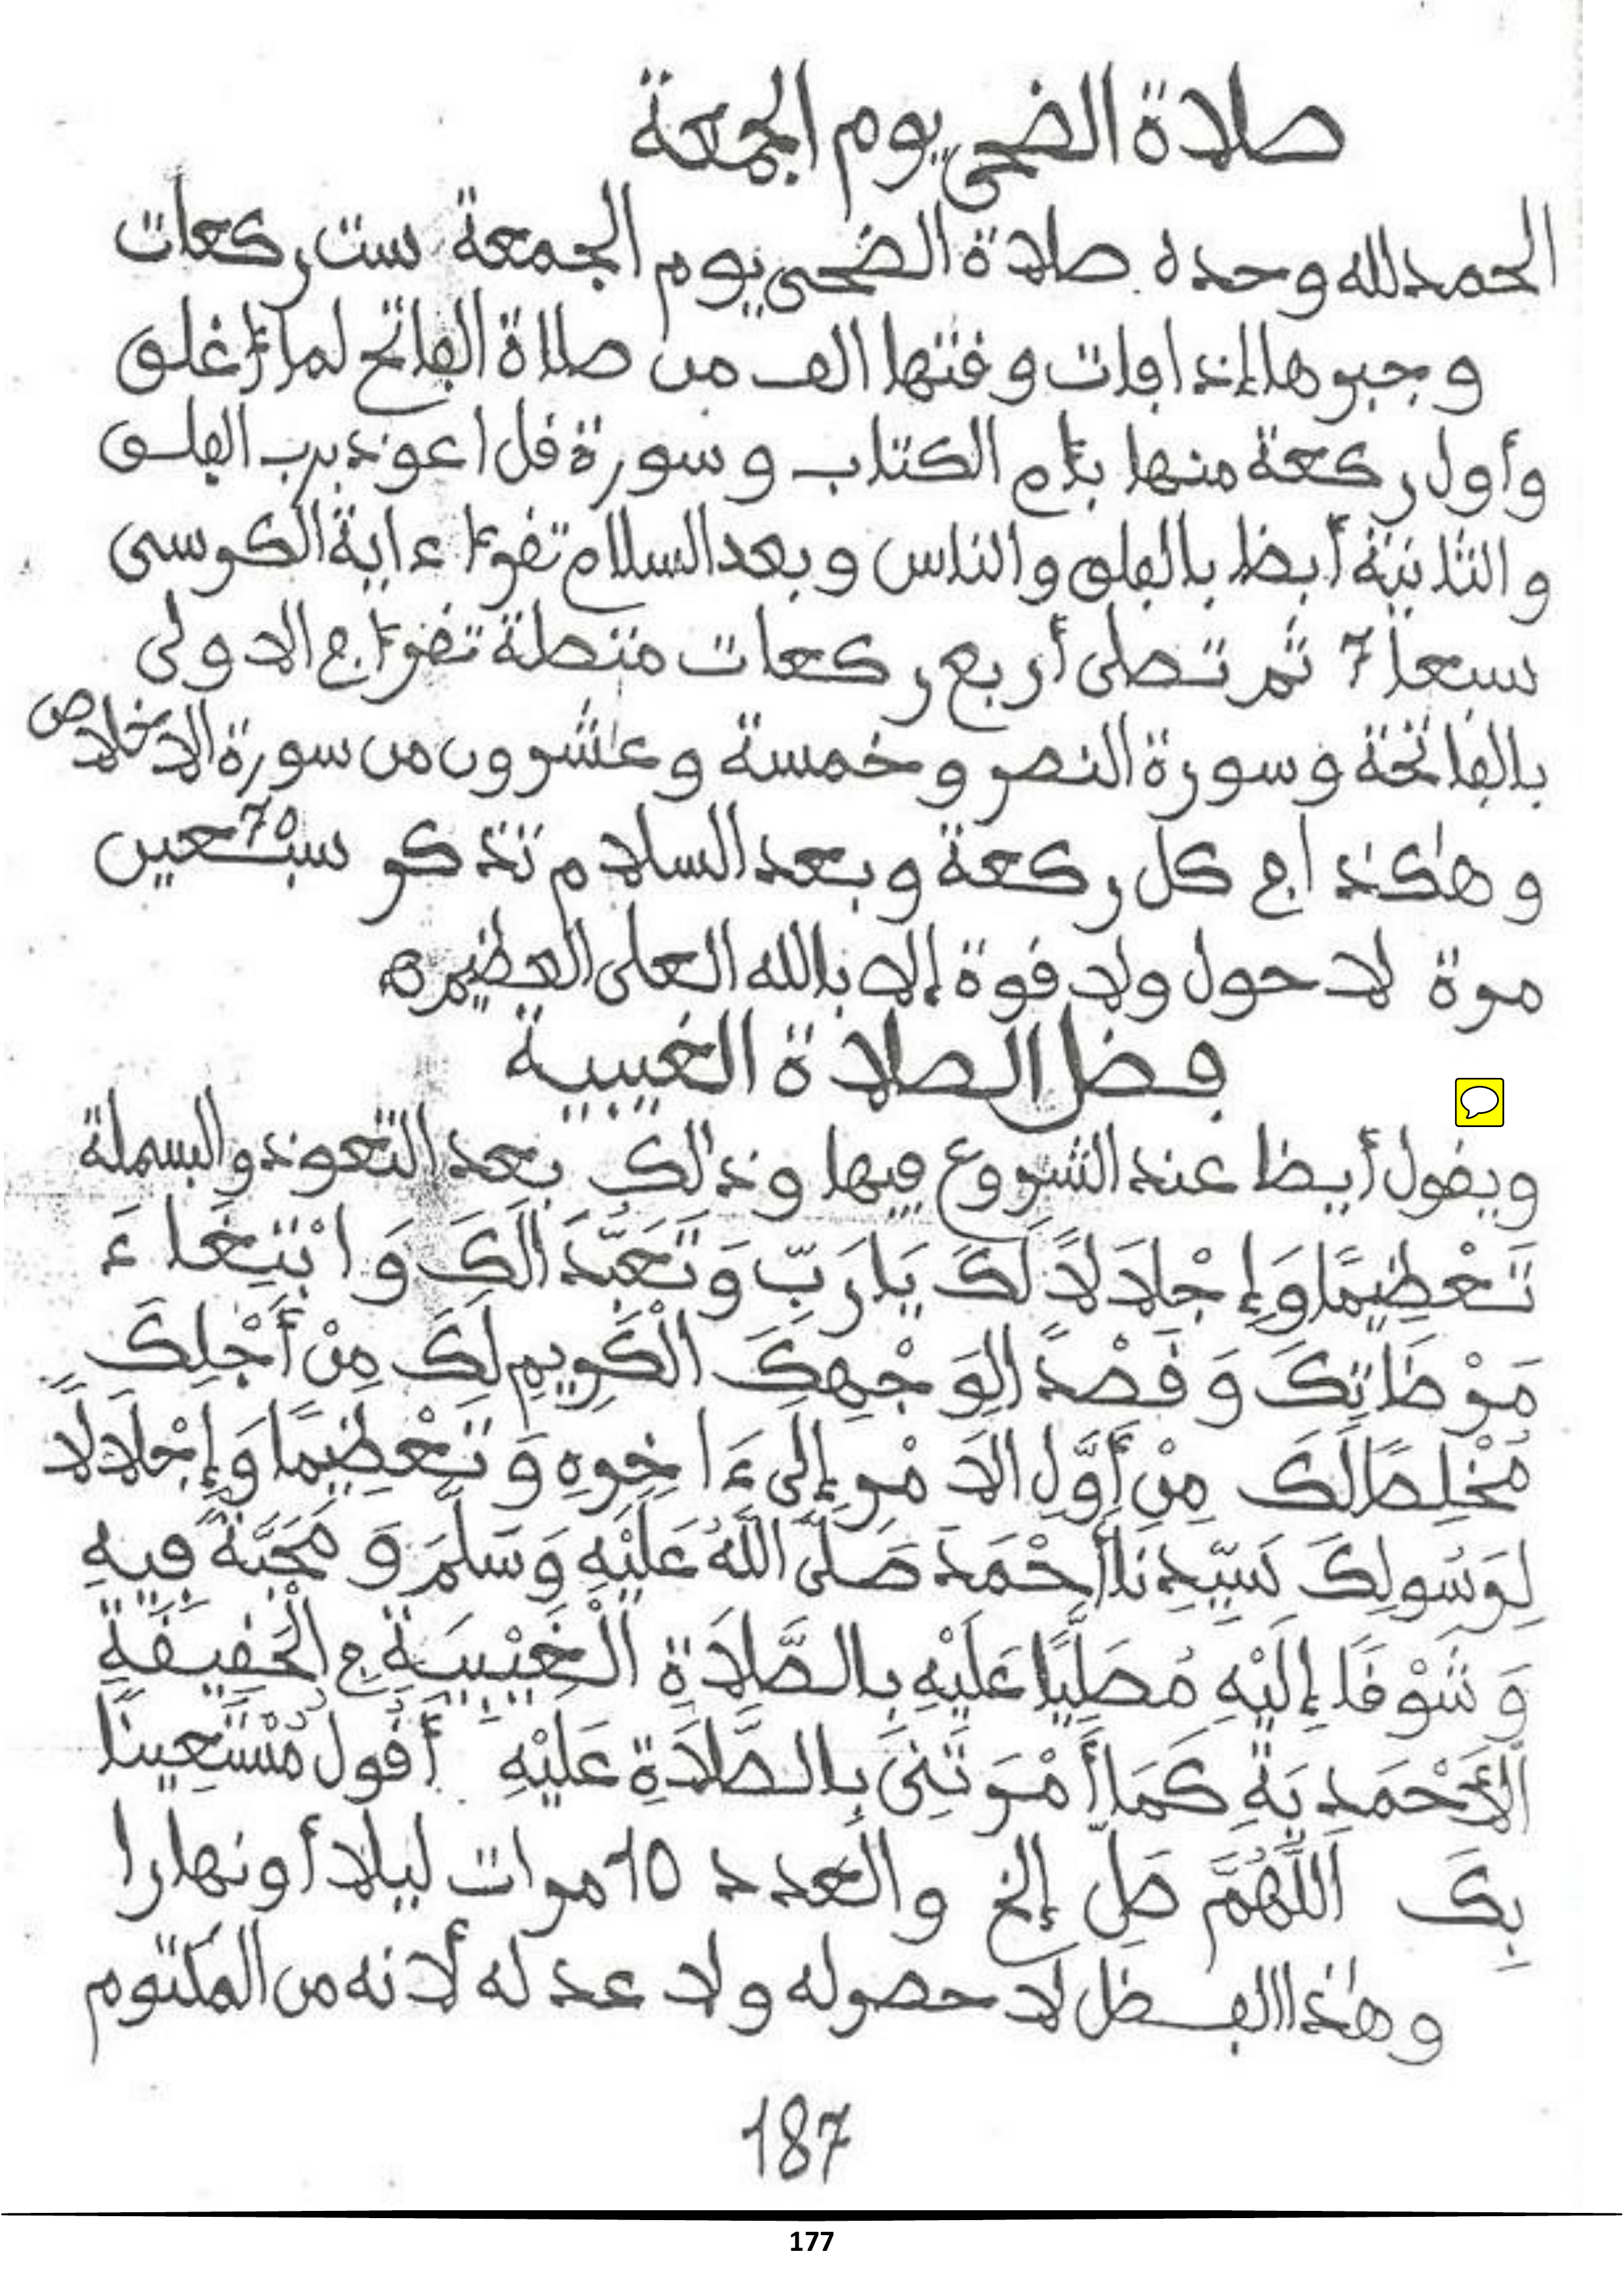 صلاة الضحى يوم الجمعة
الحمد لله وحده صلاة الضحى يوم الجمعة ست ركعات
وجبرها إذا فات وقتها الف من صلاة الفاتح لما أغلق
وأول ركعة منها بأم الكتاب وسورة قل اعوذ برب الفلق
والثانية أيظا بالفلق والناس وبعد السلام تقرأ ءاية الكرسى
سبعا 7 ثم تصلى أربع ركعات متصلة تقرأ في الاولى
بالفاتحة وسورة النصر وخمسة وعشرون من سورة الاخلاص
وهكذا في كل ركعة وبعد السلام تذكر سبعين 70
مرة لا حول ولا قوة إلا بالله العلى العظيم ه
فضل الصلاة الغيبية
ويقول أيظا عند الشروع فيها وذلك بعد التعوذ والبسملة
تَعْظِيمًا وَإِجْلَالًا لَكَ يَا رَبِّ وَتَعَبُّدًا لَكَ وَابْتِغَاءَ
مَرْضَاتِكَ وَقَصْدًا لِوَجْهِكَ الْكَرِيمِ لَكَ مِنْ أَجْلِكَ
مُخْلِصًا لَكَ مِنْ أَوَّلِ الَامْرِ إِلَى ءَاخِرِهِ وَتَعْظِيمًا وَإِجْلَالًا
لِرَسُولِكَ سَيِّدِنَا أَحْمَدَ صَلَّى اللَّهُ عَلَيْهِ وَسَلَّمَ وَمَحَبَّةً فِيهِ
وَشَوْقًا إِلَيْهِ مُصَلِّيًا عَلَيْهِ بِالصَّلَاةِ الْغَيْبِيَةِ فِي الْحَقِيقَةِ
الْأَحْمَدِيَةِ كَمَا أَمَرْتَنِى بِالصَّلَاةِ عَلَيْهِ أَقُولُ مُسْتَعِينًا
بِكَ اللَّهُمَّ صَلِّ إلخ والعدد 10 مرات ليلا أو نهارا
وهذا الفظل لا حصر له ولا عد له لأنه من المكتوم
187
177